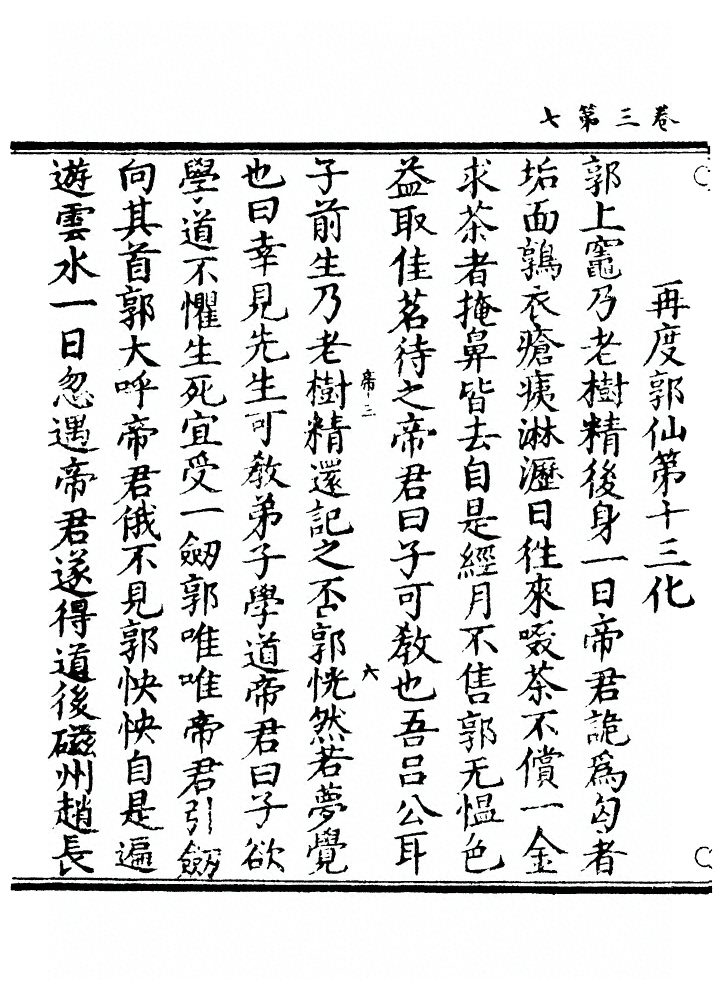 卷三第七
再度郭仙第十三化
郭上竈乃老樹精後身一日帝君詭爲匃者
垢面鶉衣瘡痍淋瀝日徃來啜茶不償一金
求茶者掩鼻皆去自是經月不售郭无愠色
益取佳茗待之帝君曰子可教也吾吕公耳
子前生乃老樹精還記之否郭恍然若夢覺
帝三
六
也曰幸見先生可教弟子學道帝君曰子欲
學道不懼生死宜受一劒郭唯唯帝君引劒
向其首郭大呼帝君俄不見郭怏怏自是遍
遊雲水一日忽遇帝君遂得道後磁州趙長